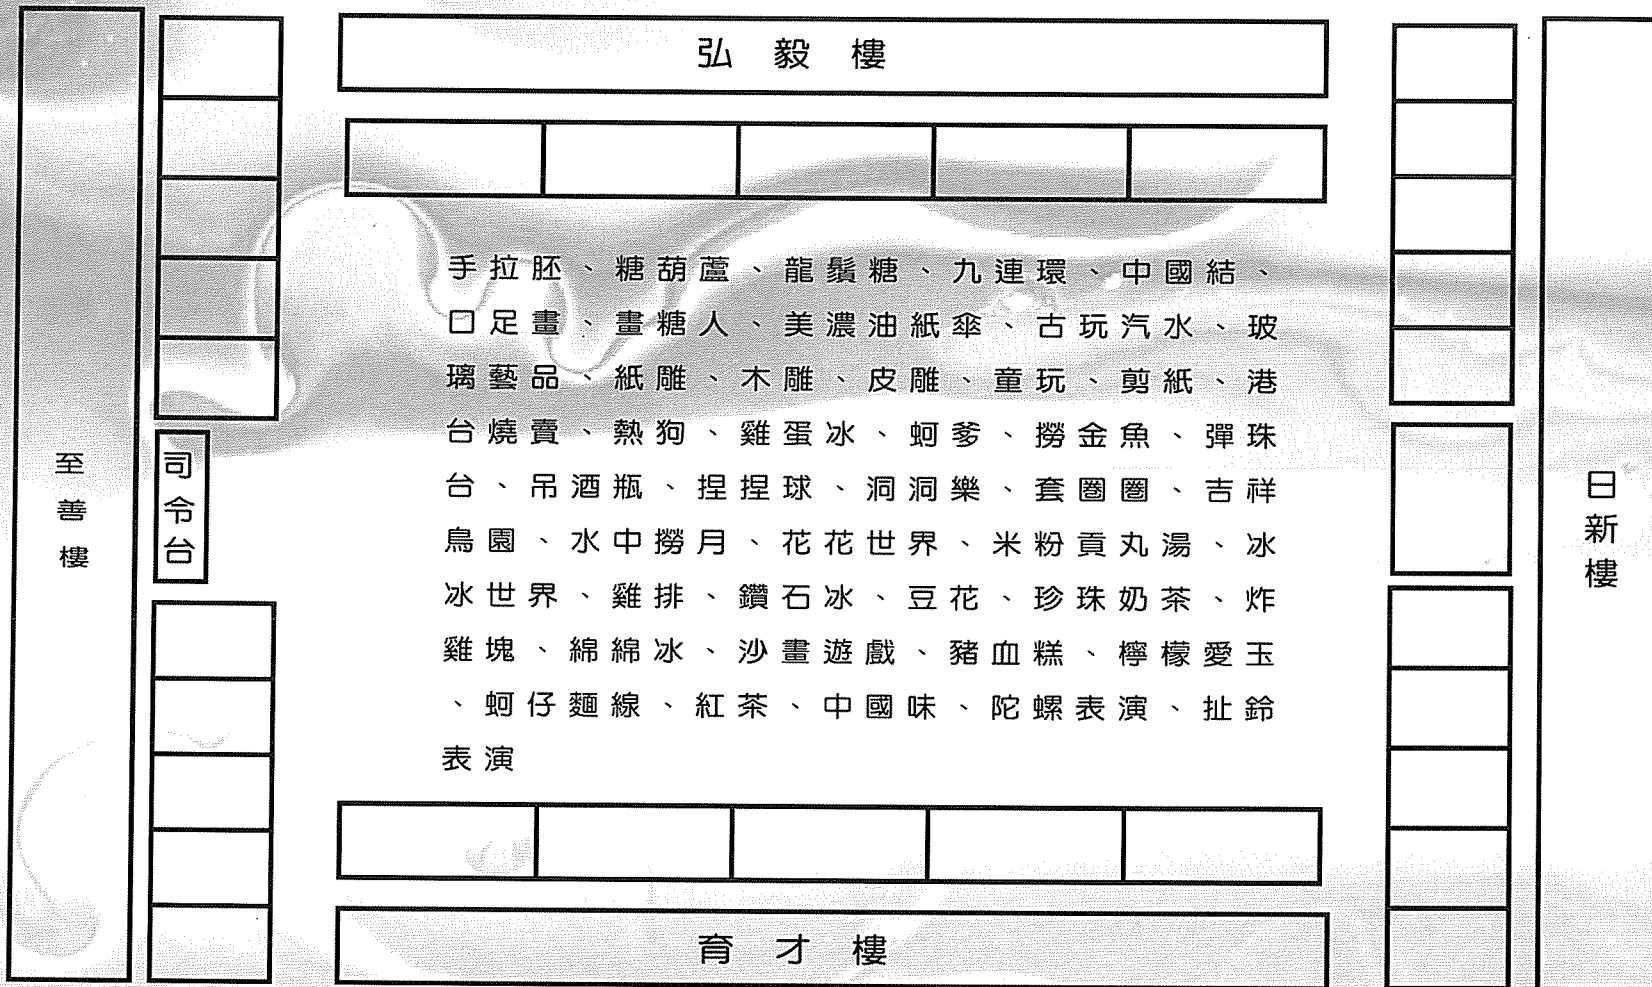 弘毅樓
手拉胚、糖葫蘆、龍鬚糖、九連環、中國結、
口足畫、畫糖人、美濃油紙傘、古玩汽水、玻
璃藝品、紙雕、木雕、皮雕、童玩、剪紙、港
台燒賣、熱狗、雞蛋冰、蚵爹、撈金魚、彈珠
台、吊酒瓶、捏捏球、洞洞樂、套圈圈、吉祥
鳥園、水中撈月、花花世界、米粉貢丸湯、冰
冰世界、雞排、鑽石冰、豆花、珍珠奶茶、炸
雞塊、綿綿冰、沙畫遊戲、豬血糕、檸檬愛玉
、蚵仔麵線、紅茶、中國味、陀螺表演、扯鈴
表演
至善樓
司令台
日新樓
育才樓